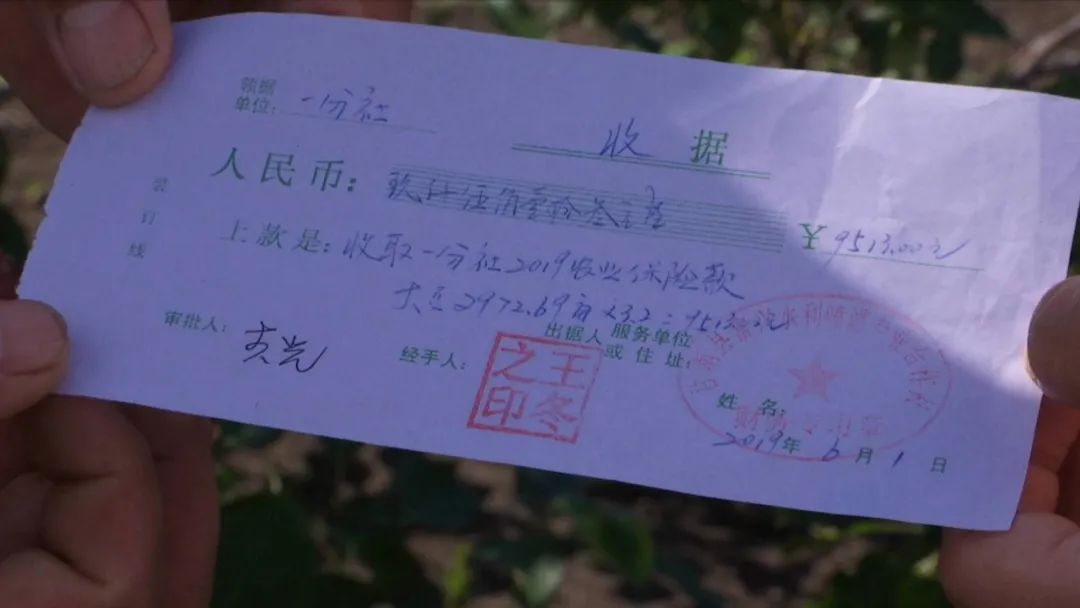 领据
单位：一分社
收据
人民币：玖仟伍佰壹拾叁元 ¥9513.00元
上款是：收取一分社2019农业保险款
大豆2972.69亩×3.2=9513元
审批人：
经手人：
出据人 服务单位
或 住 址：
王冬之印
姓 名：
财务专用章
2019年6月1日
装订线